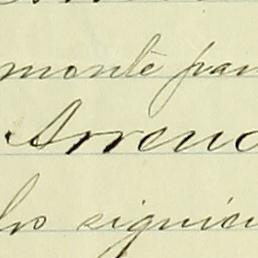 monte par
Arrend
los siguien